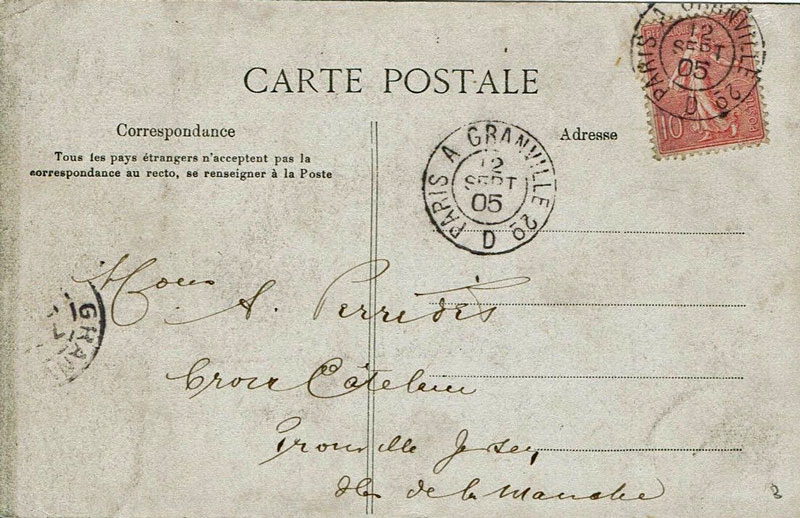 CARTE POSTALE
Correspondance
Tous les pays étrangers n'acceptent pas la
correspondance au recto, se renseigner à la Poste
Adresse
PARIS A GRANVILLE 2º
12
SEPT
05
D
PARIS A GRANVILLE 2º
12
SEPT
05
D
10
POSTES
GRAN
Mons A. Perredès
Croix Câtelain
Trouville Jersey
Iles de la Manche